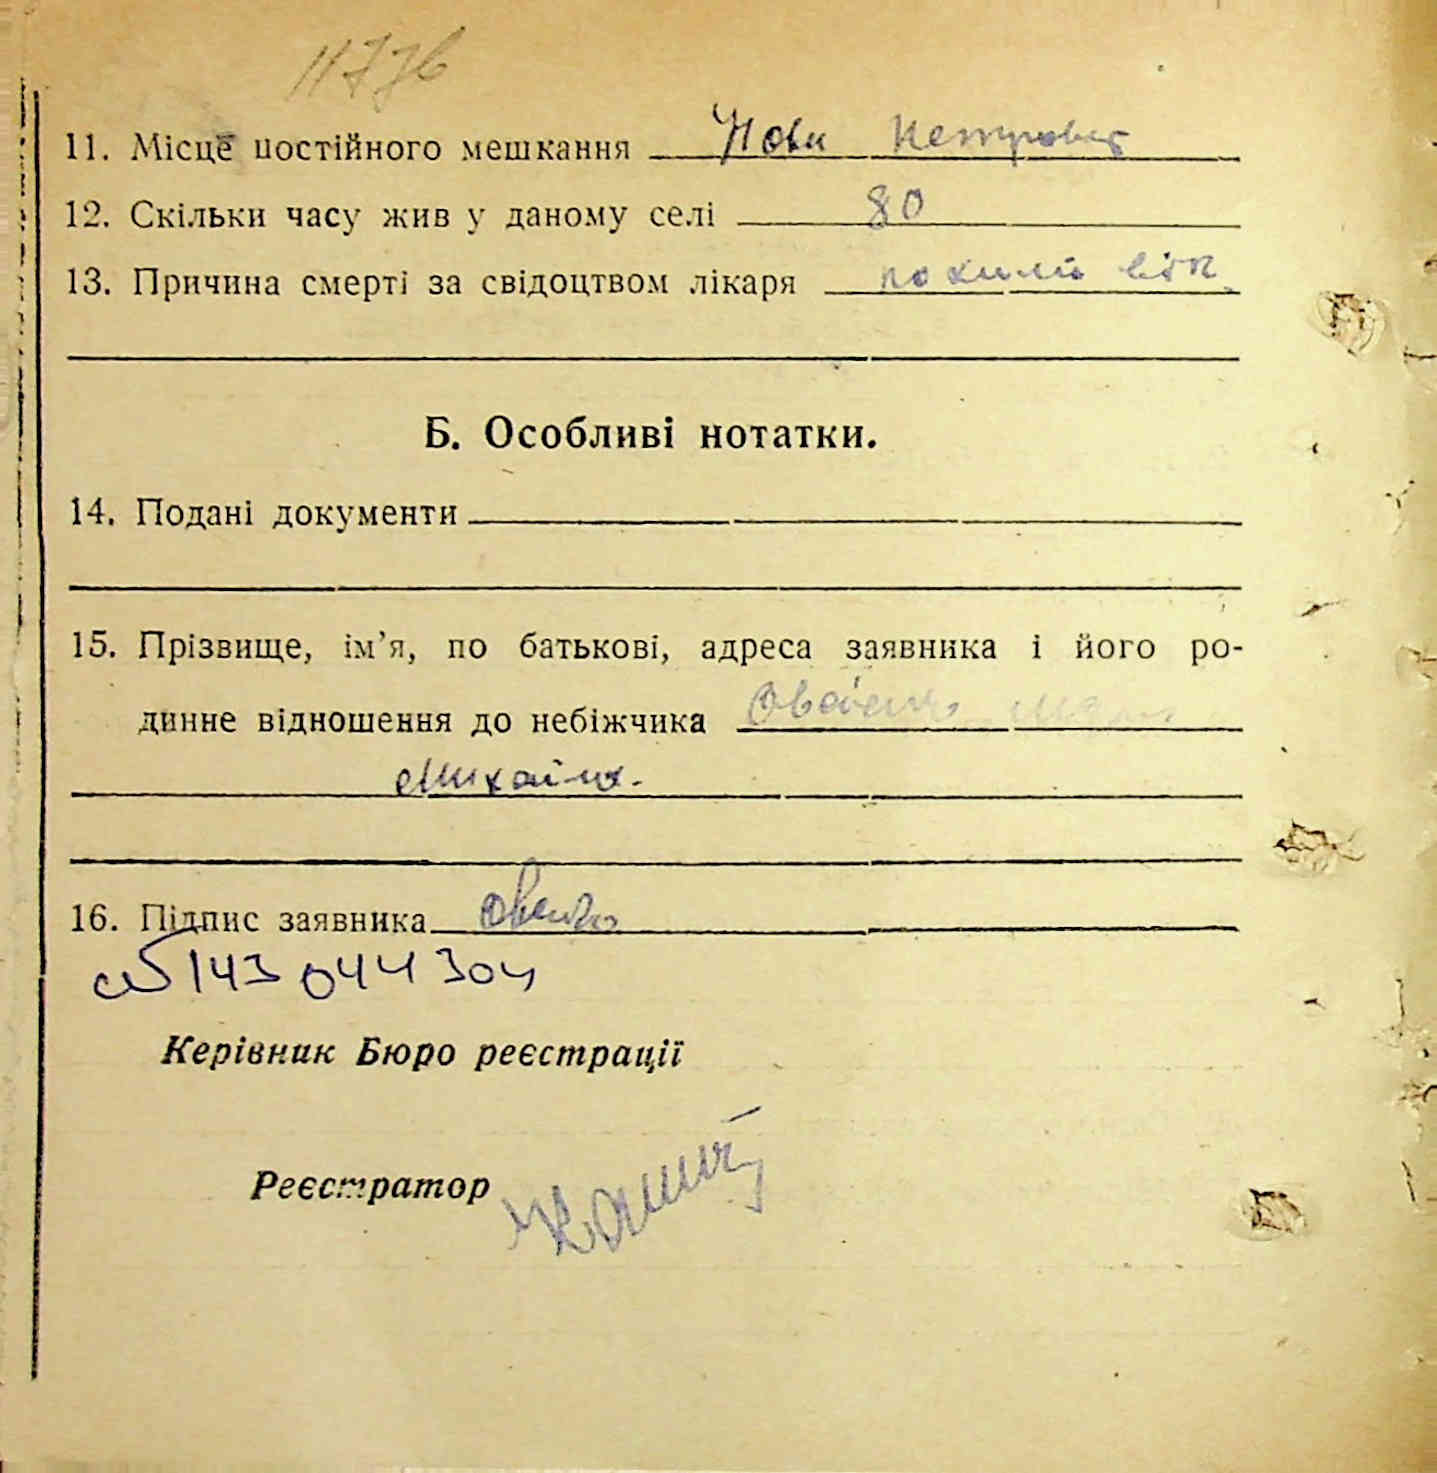 1176
11. Місце постійного мешкання Нови Петровці
12. Скільки часу жив у даному селі 80
13. Причина смерті за свідоцтвом лікаря похилий вік
Б. Особливі нотатки.
14. Подані документи
15. Прізвище, ім’я, по батькові, адреса заявника і його ро-
динне відношення до небіжчика
Михайло.
16. Підпис заявника
143 044 304
Керівник Бюро реєстрації
Реєстратор